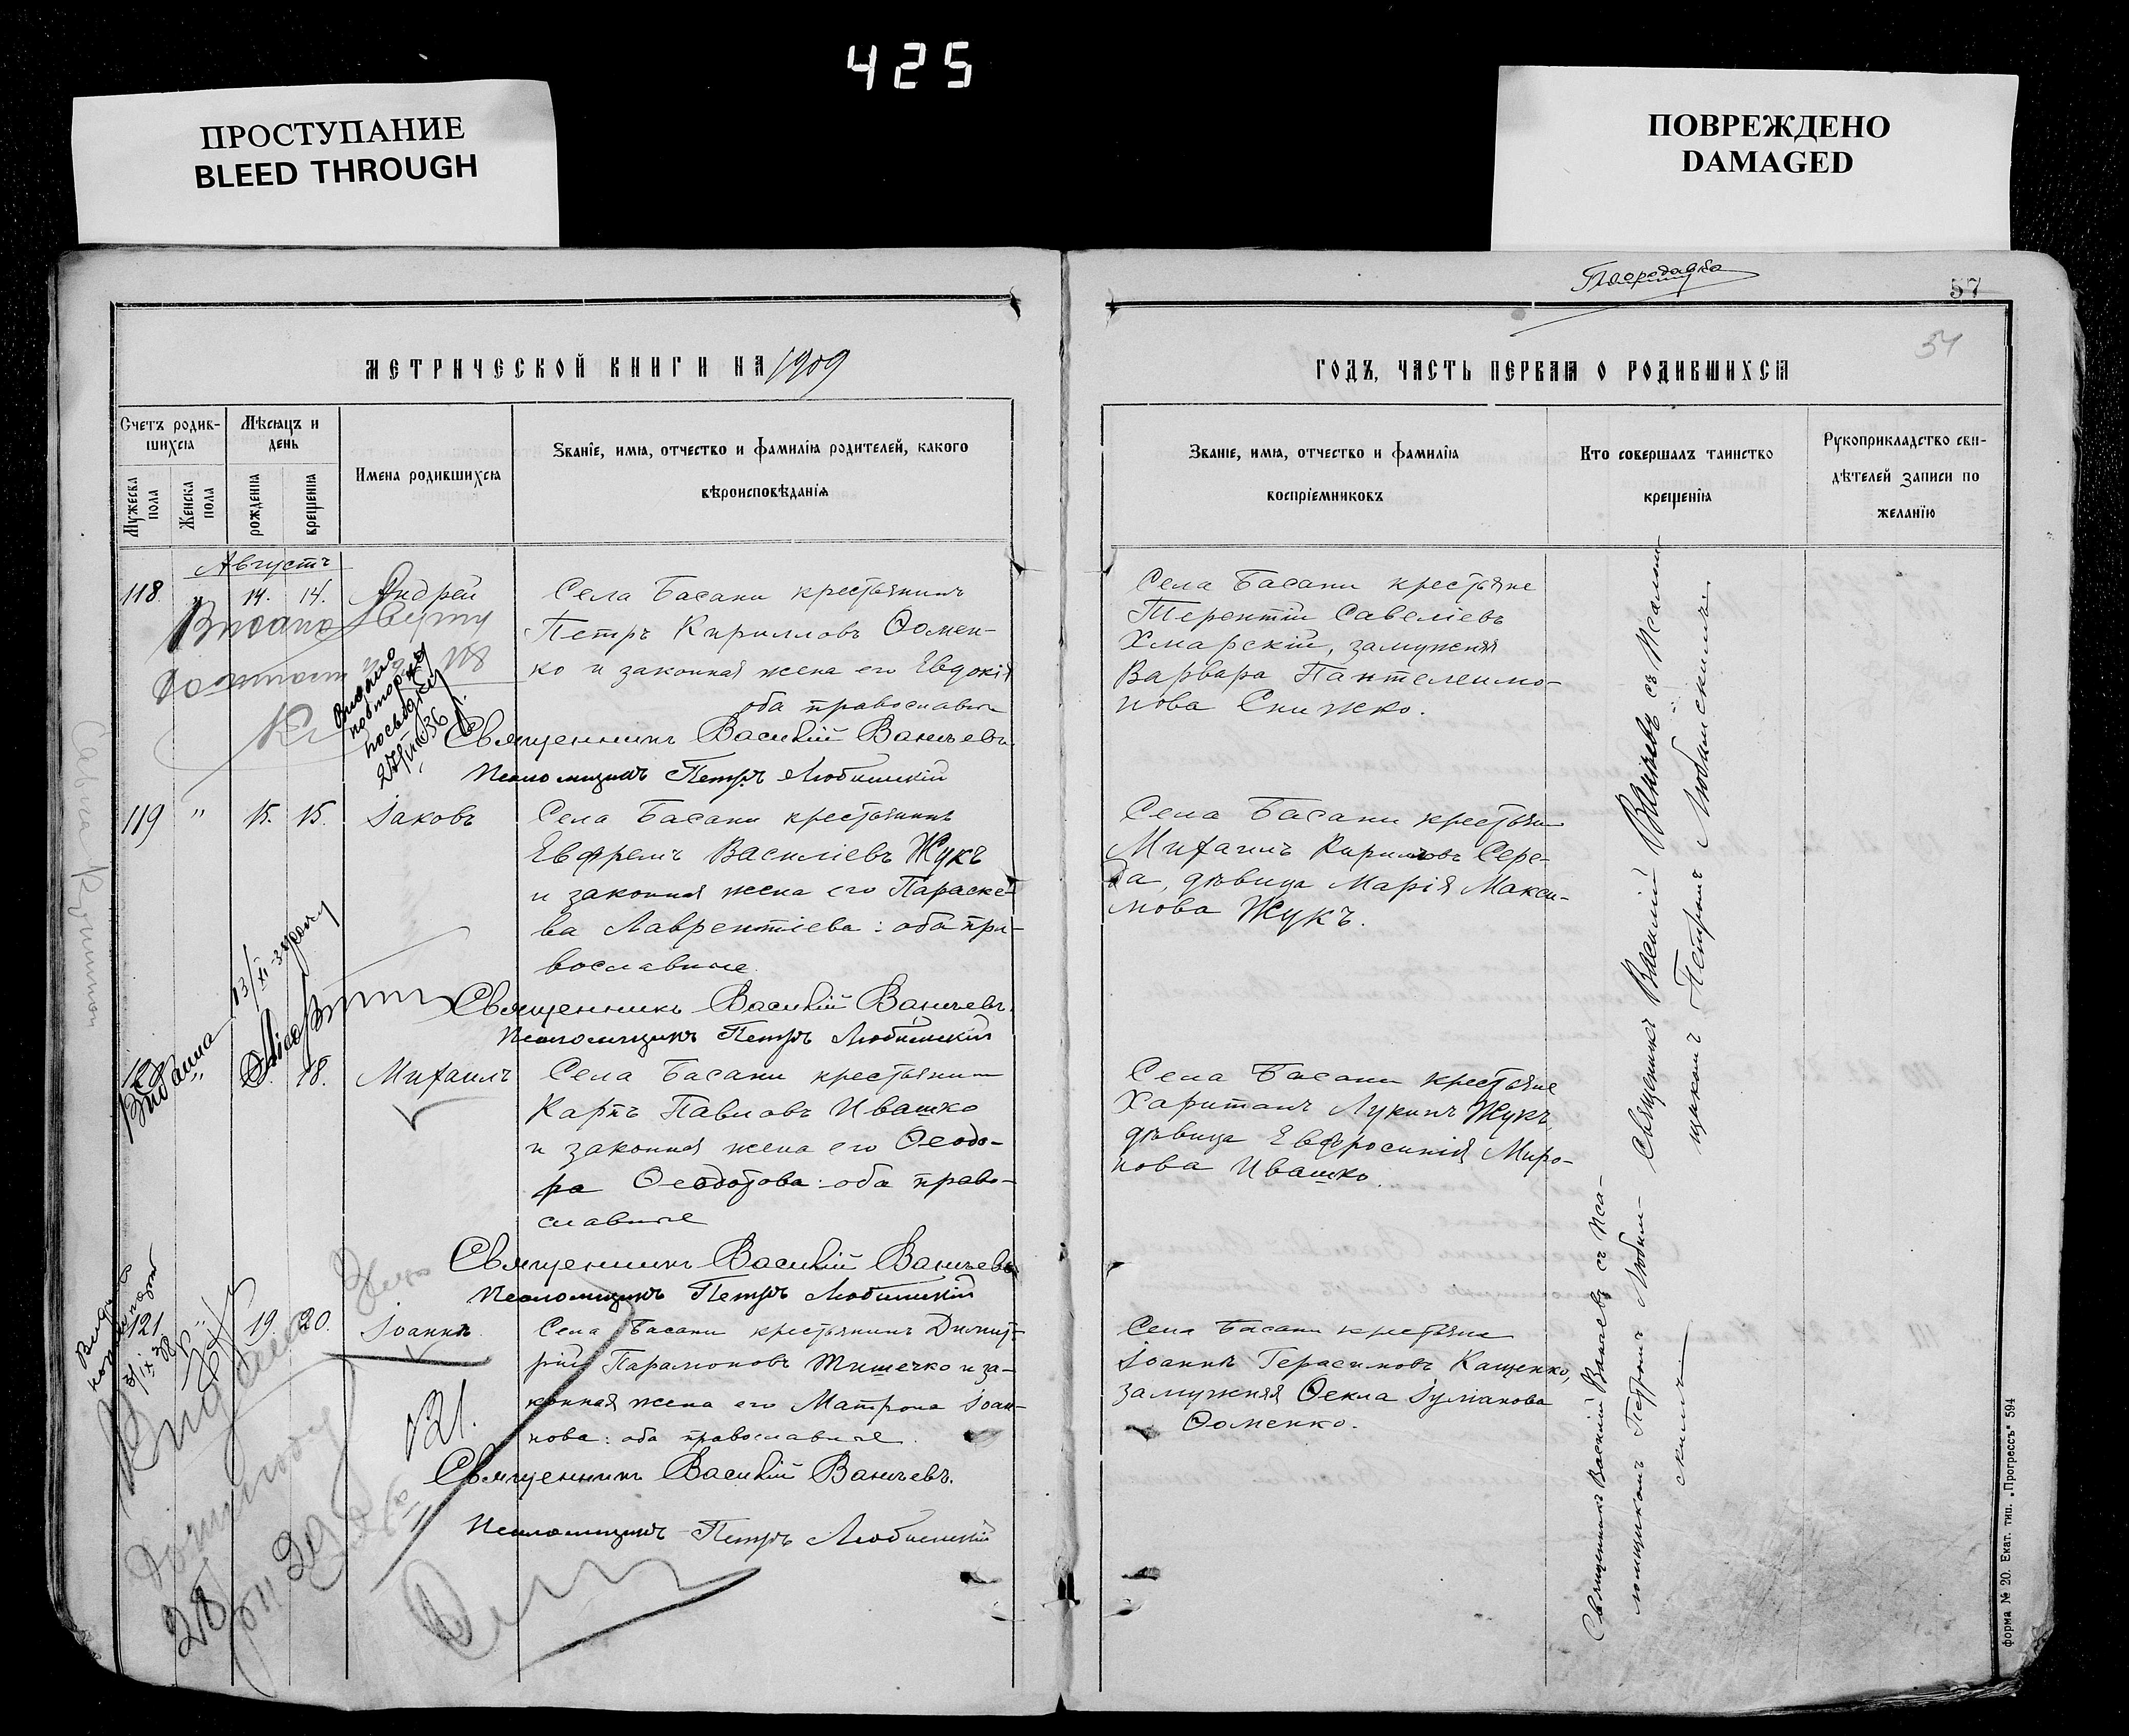 425
ПРОСТУПАНИЕ
BLEED THROUGH
ПОВРЕЖДЕНО
DAMAGED
57
54
МЕТРИЧЕСКОЙ КНИГИ НА 1909
Счетъ родив-
шихся
Мужеска пола
Женска пола
Мѣсяцъ и
день
рожденія
крещенія
Имена родившихся
Званіе, имя, отчество и фамилія родителей, какого
вѣроисповѣданія
Августъ
118 " 14. 14. Андрей
Села Басани крестьянинъ
Петръ Кирилловъ Ѳомен-
ко и законная жена его Евдокія
оба православные
Священникъ Василій Ваничевъ.
Псаломщикъ Петръ Любимскій
119 " 15. 15. Іаковъ
Села Басани крестьянинъ
Евфремъ Василіевъ Жукъ
и законная жена его Параске-
ва Лаврентіева: оба пра-
вославные
Священникъ Василій Ваничевъ.
Псаломщикъ Петръ Любимскій
18. Михаилъ
Села Басани крестьянинъ
Карпъ Павловъ Ивашко
и законная жена его Ѳеодо-
ра Ѳеодотова: оба право-
славные
Священникъ Василій Ваничевъ
Псаломщикъ Петръ Любимскій
121 " 19. 20. Іоаннъ
Села Басани крестьянинъ Димит-
рій Парамоновъ Тимечко и за-
конная жена его Матрона Іоан-
нова: оба православные.
121.
Священникъ Василій Ваничевъ.
Псаломщикъ Петръ Любимскій
ГОДЪ, ЧАСТЬ ПЕРВАЯ О РОДИВШИХСЯ
Званіе, имя, отчество и фамилія
воспріемниковъ
Кто совершалъ таинство
крещенія
Рукоприкладство сви-
дѣтелей записи по
желанію
Села Басани крестьяне
Терентій Савеліевъ
Хмарскій, замужняя
Варвара Пантелеимо-
нова Снижко.
Села Басани крестьяне
Михаилъ Кириловъ Сере-
да, дѣвица Марія Макси-
мова Жукъ.
Села Басани крестьяне
Харитонъ Лукинъ Жукъ,
дѣвица Евфросинія Миро-
нова Ивашко.
Села Басани крестьяне
Іоаннъ Герасимовъ Кащенко,
замужняя Ѳекла Іуліанова
Ѳоменко.
Священникъ Василій Ваничевъ съ Псалом-
щикомъ Петромъ Любимскимъ.
Священникъ Василій Ваничевъ съ Пса-
ломщикомъ Петромъ Любим-
скимъ
форма № 20. Екат. тип. „Прогрессъ" 594